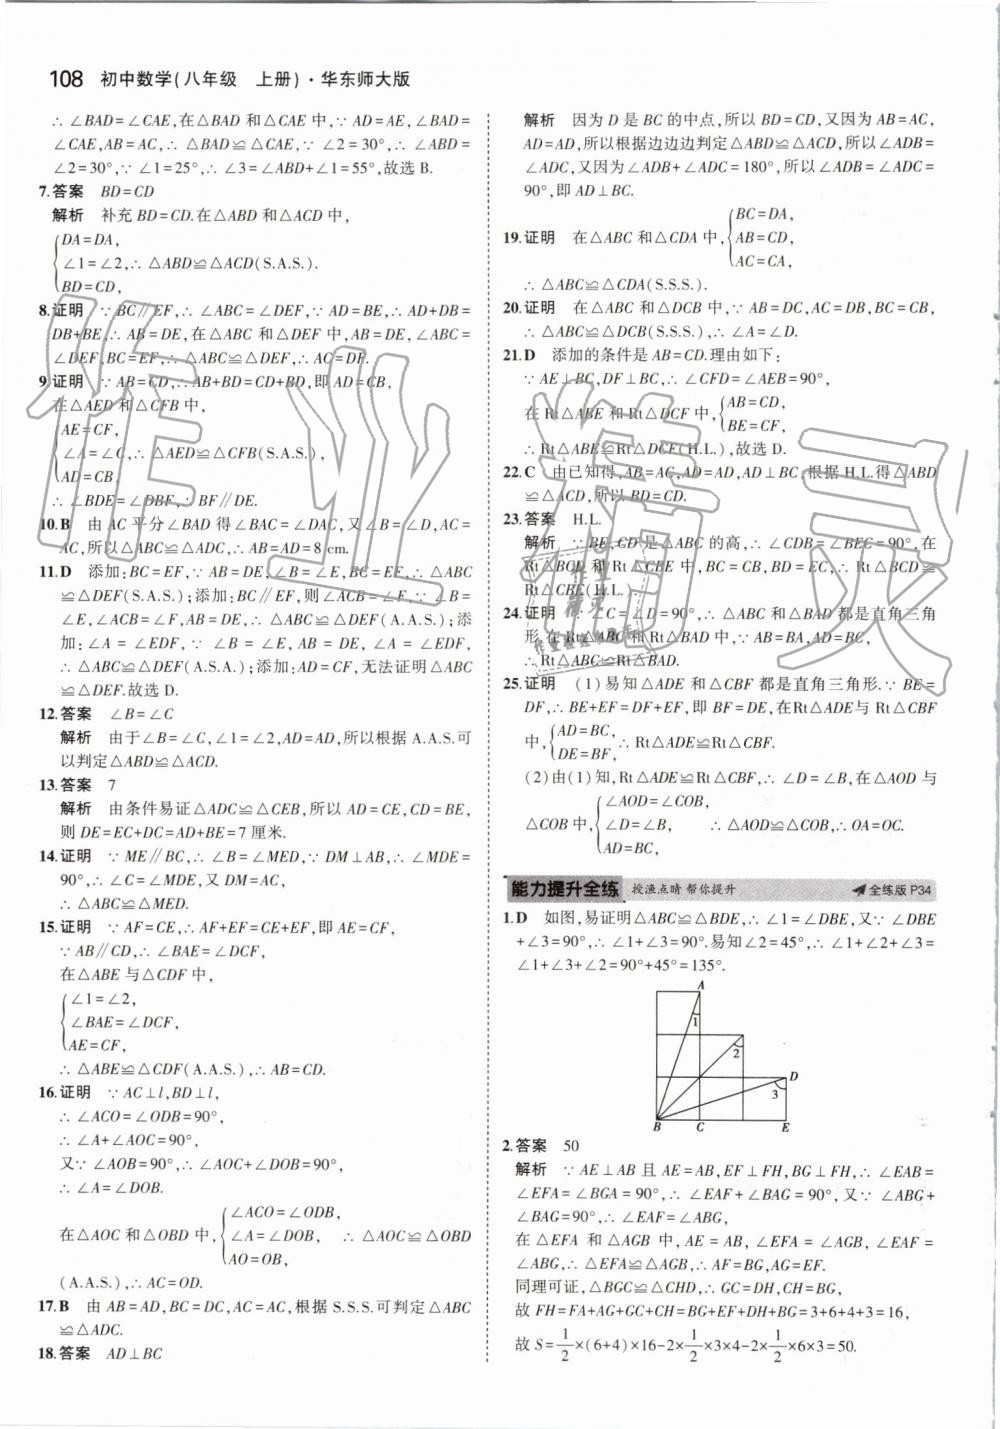 108 初中数学(八年级 上册)·华东师大版
∴ ∠BAD=∠CAE,在△BAD 和△CAE 中,∵ AD=AE,∠BAD=
∠CAE,AB=AC,∴ △BAD≌△CAE,∵ ∠2=30°,∴ ∠ABD=
∠2=30°,∵ ∠1=25°,∴ ∠3=∠ABD+∠1=55°,故选 B.
7.答案 BD=CD
解析 补充 BD=CD.在△ABD 和△ACD 中,
DA=DA,
∠1=∠2,∴ △ABD≌△ACD(S.A.S.).
BD=CD,
8.证明 ∵ BC∥EF,∴ ∠ABC=∠DEF,∵ AD=BE,∴ AD+DB=
DB+BE,∴ AB=DE,在△ABC 和△DEF 中,AB=DE,∠ABC=
∠DEF,BC=EF,∴ △ABC≌△DEF,∴ AC=DF.
9.证明 ∵ AB=CD,∴ AB+BD=CD+BD,即 AD=CB,
在△AED 和△CFB 中,
AE=CF,
∠A=∠C,∴ △AED≌△CFB(S.A.S.),
AD=CB,
∴ ∠BDE=∠DBF,∴ BF∥DE.
10.B 由 AC 平分∠BAD 得∠BAC=∠DAC,又∠B=∠D,AC=
AC,所以△ABC≌△ADC,∴ AB=AD=8 cm.
11.D 添加:BC=EF,∵ AB=DE,∠B=∠E,BC=EF,∴ △ABC
≌△DEF(S.A.S.);添加:BC∥EF,则∠ACB=∠F,∵ ∠B=
∠E,∠ACB=∠F,AB=DE,∴ △ABC≌△DEF(A.A.S.);添
加:∠A=∠EDF,∵ ∠B=∠E,AB=DE,∠A=∠EDF,
∴ △ABC≌△DEF(A.S.A.);添加:AD=CF,无法证明△ABC
≌△DEF.故选 D.
12.答案 ∠B=∠C
解析 由于∠B=∠C,∠1=∠2,AD=AD,所以根据 A.A.S.可
以判定△ABD≌△ACD.
13.答案 7
解析 由条件易证△ADC≌△CEB,所以 AD=CE,CD=BE,
则 DE=EC+DC=AD+BE=7 厘米.
14.证明 ∵ ME∥BC,∴ ∠B=∠MED,∵ DM⊥AB,∴ ∠MDE=
90°,∴ ∠C=∠MDE,又 DM=AC,
∴ △ABC≌△MED.
15.证明 ∵ AF=CE,∴ AF+EF=CE+EF,即 AE=CF,
∵ AB∥CD,∴ ∠BAE=∠DCF,
在△ABE 与△CDF 中,
∠1=∠2,
∠BAE=∠DCF,
AE=CF,
∴ △ABE≌△CDF(A.A.S.),∴ AB=CD.
16.证明 ∵ AC⊥l,BD⊥l,
∴ ∠ACO=∠ODB=90°,
∴ ∠A+∠AOC=90°,
又∵ ∠AOB=90°,∴ ∠AOC+∠DOB=90°,
∴ ∠A=∠DOB.
∠ACO=∠ODB,
在△AOC 和△OBD 中, ∠A=∠DOB, ∴ △AOC≌△OBD
AO=OB,
(A.A.S.),∴ AC=OD.
17.B 由 AB=AD,BC=DC,AC=AC,根据 S.S.S.可判定△ABC
≌△ADC.
18.答案 AD⊥BC
解析 因为 D 是 BC 的中点,所以 BD=CD,又因为 AB=AC,
AD=AD,所以根据边边边判定△ABD≌△ACD,所以∠ADB=
∠ADC,又因为∠ADB+∠ADC=180°,所以∠ADB=∠ADC=
90°,即 AD⊥BC.
BC=DA,
19.证明 在△ABC 和△CDA 中, AB=CD,
AC=CA,
∴ △ABC≌△CDA(S.S.S.).
20.证明 在△ABC 和△DCB 中,∵ AB=DC,AC=DB,BC=CB,
∴ △ABC≌△DCB(S.S.S.),∴ ∠A=∠D.
21.D 添加的条件是 AB=CD.理由如下:
∵ AE⊥BC,DF⊥BC,∴ ∠CFD=∠AEB=90°,
在 Rt△ABE 和Rt△DCF 中, AB=CD,
BE=CF,
∴ Rt△ABE≌Rt△DCF(H.L.),故选 D.
22.C 由已知得,AB=AC,AD=AD,AD⊥BC,根据 H.L.得△ABD
≌△ACD,所以 BD=CD.
23.答案 H.L.
解析 ∵ BE,CD 是△ABC 的高,∴ ∠CDB=∠BEC=90°,在
Rt△BCD 和 Rt△CBE 中,BC=CB,BD=EC,∴ Rt△BCD≌
Rt△CBE(H.L.).
24.证明 ∵ ∠C=∠D=90°,∴ △ABC 和△BAD 都是直角三角
形,在 Rt△ABC 和 Rt△BAD 中,∵ AB=BA,AD=BC,
∴ Rt△ABC≌Rt△BAD.
25.证明 (1)易知△ADE 和△CBF 都是直角三角形.∵ BE=
DF,∴ BE+EF=DF+EF,即 BF=DE,在Rt△ADE与 Rt△CBF
中, AD=BC,
DE=BF, ∴ Rt△ADE≌Rt△CBF.
(2)由(1)知,Rt△ADE≌Rt△CBF,∴ ∠D=∠B,在△AOD 与
∠AOD=∠COB,
△COB 中, ∠D=∠B, ∴ △AOD≌△COB,∴ OA=OC.
AD=BC,
能力提升全练 授渔点睛 帮你提升 全练版 P34
1.D 如图,易证明△ABC≌△BDE,∴ ∠1=∠DBE,又∵ ∠DBE
+∠3=90°,∴ ∠1+∠3=90°.易知∠2=45°,∴ ∠1+∠2+∠3=
∠1+∠3+∠2=90°+45°=135°.
A
1
2
D
3
B C E
2.答案 50
解析 ∵ AE⊥AB 且 AE=AB,EF⊥FH,BG⊥FH,∴ ∠EAB=
∠EFA=∠BGA=90°,∴ ∠EAF+∠BAG=90°,又∵ ∠ABG+
∠BAG=90°,∴ ∠EAF=∠ABG,
在△EFA 和△AGB 中,AE=AB,∠EFA=∠AGB,∠EAF=
∠ABG,∴ △EFA≌△AGB,∴ AF=BG,AG=EF.
同理可证,△BGC≌△CHD,∴ GC=DH,CH=BG,
故 FH=FA+AG+GC+CH=BG+EF+DH+BG=3+6+4+3=16,
故 S=1/2×(6+4)×16-2×1/2×3×4-2×1/2×6×3=50.
作业精灵